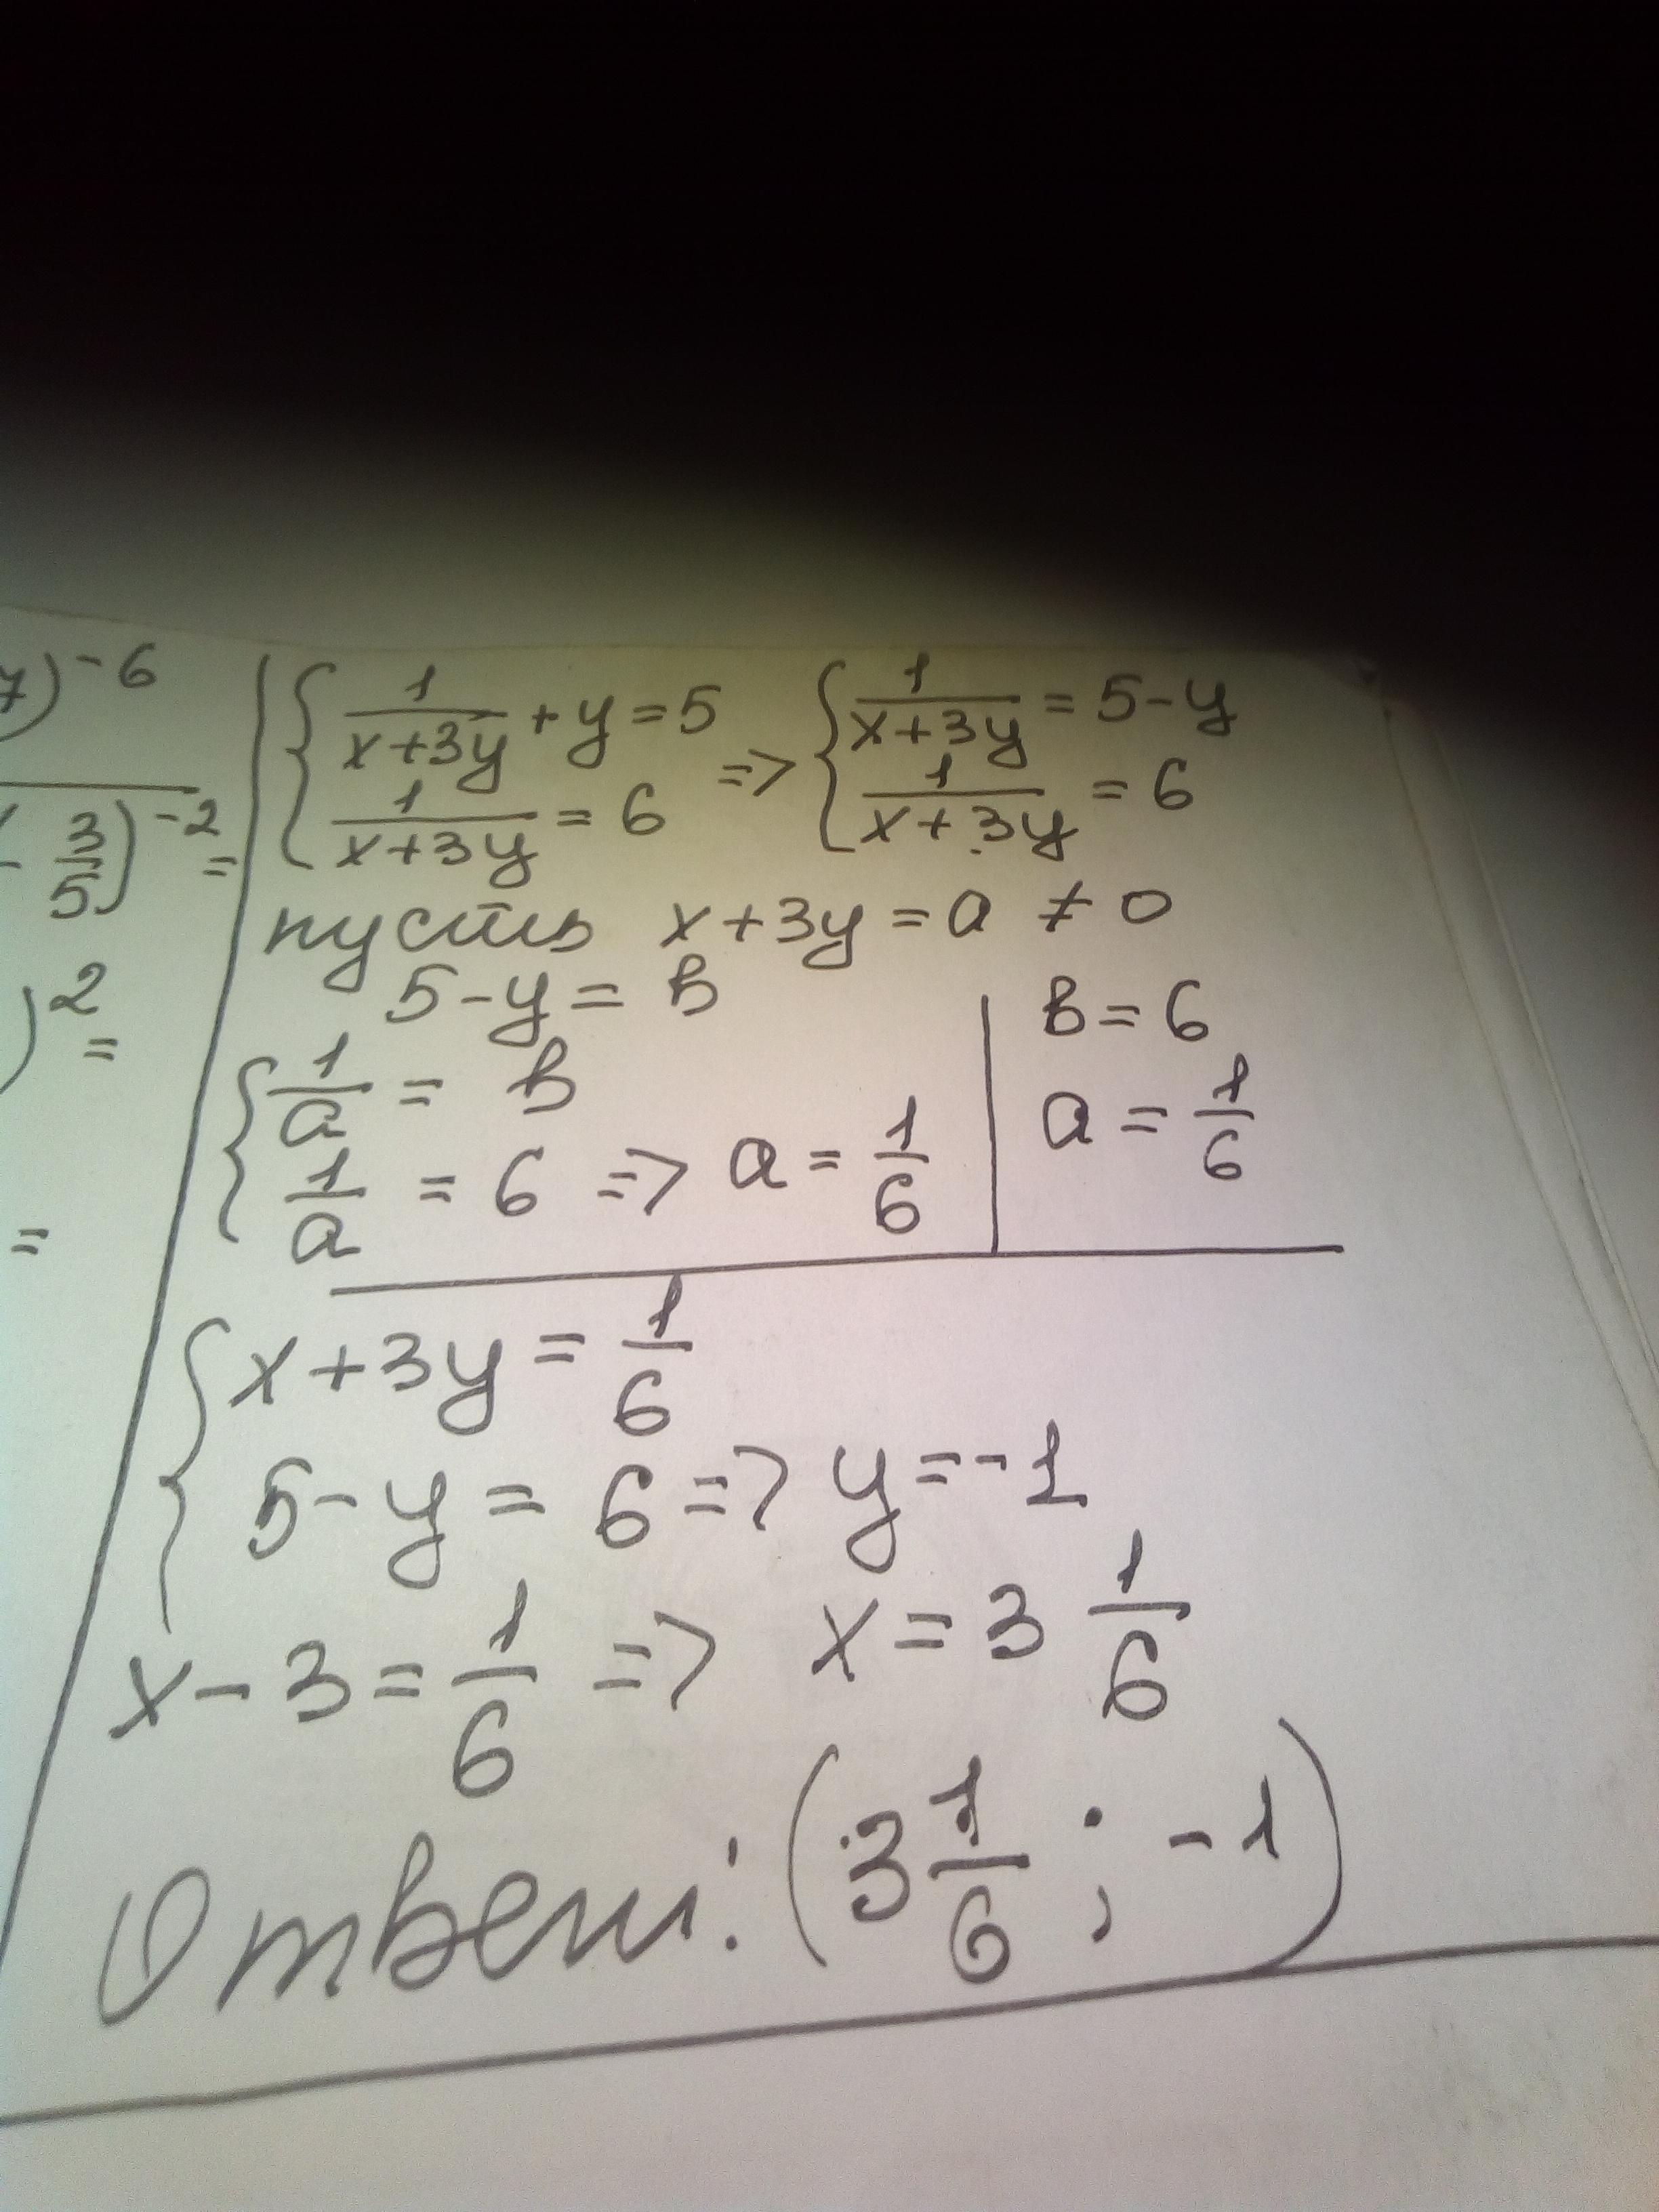 7)^-6
- 3/5)^-2 =
)^2 =
=
{ 1/(x+3y) + y = 5 => { 1/(x+3y) = 5-y
{ 1/(x+3y) = 6 { 1/(x+3y) = 6
пусть x+3y = a ≠ 0
5-y = в
{ 1/a = в
{ 1/a = 6 => a = 1/6
в = 6
a = 1/6
{ x+3y = 1/6
5-y = 6 => y = -1
x-3 = 1/6 => x = 3 1/6
Ответ: (3 1/6 ; -1)